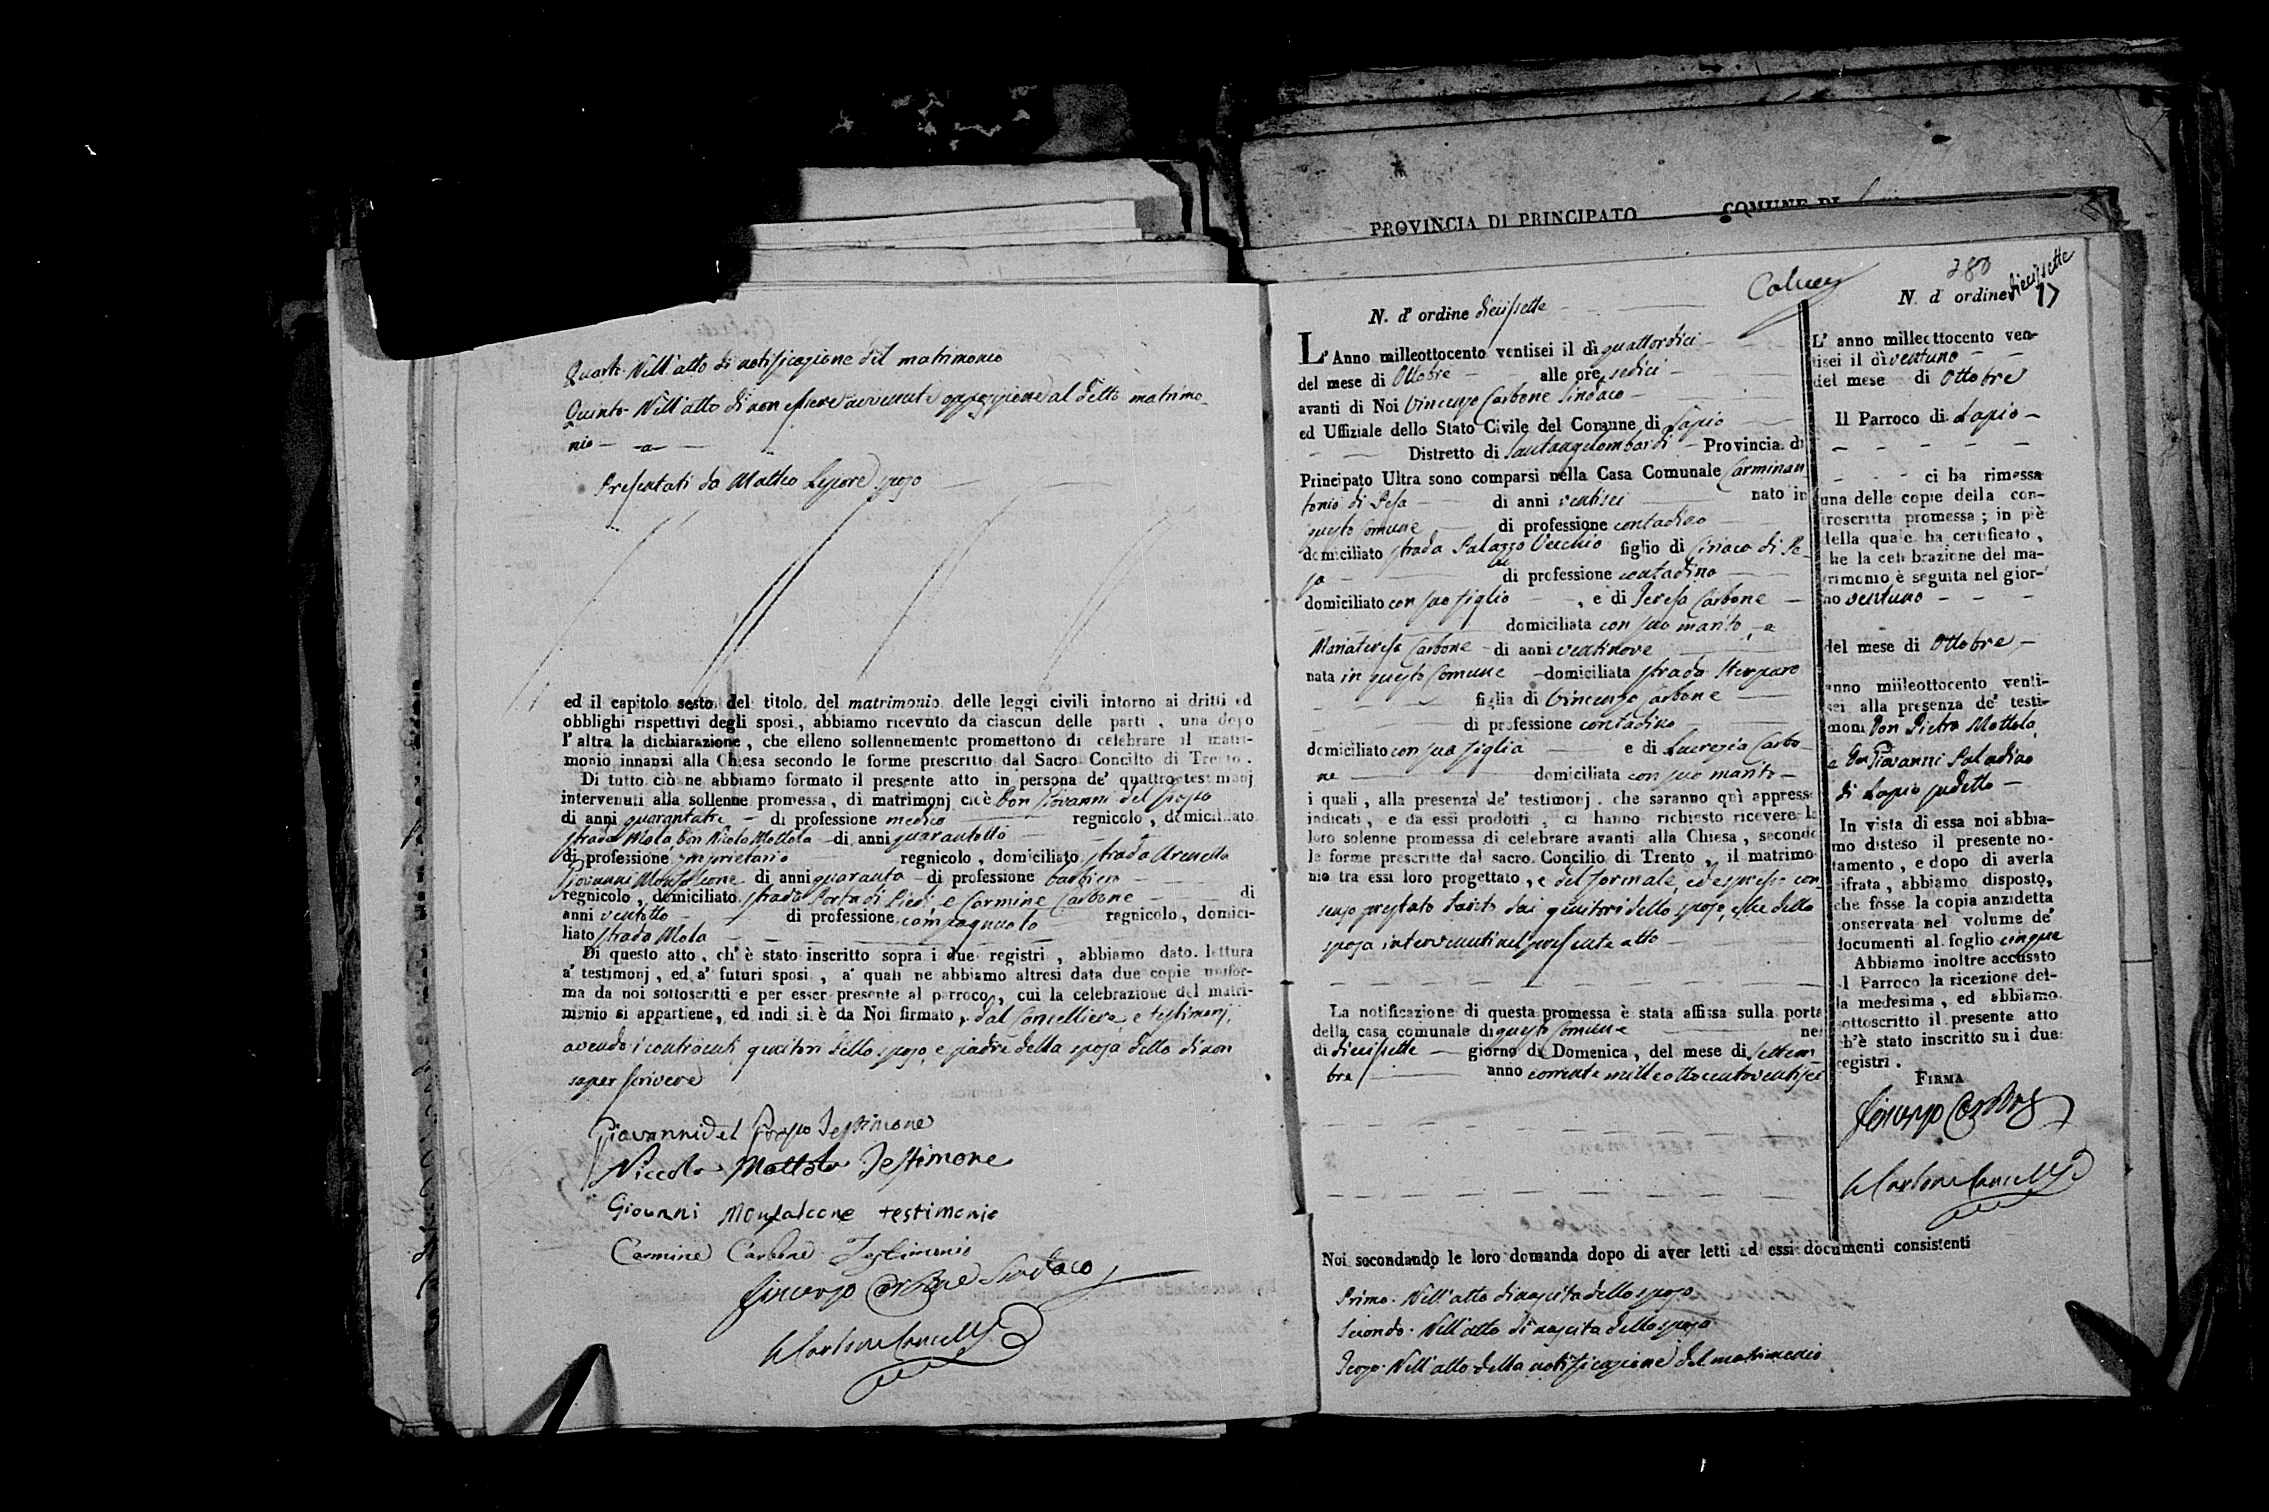 Quarto. Nell'atto di notificazione del matrimonio
Quinto. Nell'atto di non essere avvenute opposizione al detto matrimo-
nio
Presentati da Matteo Lepore sposo
ed il capitolo sesto del titolo del matrimonio delle leggi civili intorno ai dritti ed
obblighi rispettivi degli sposi, abbiamo ricevuto da ciascun delle parti, una dopo
l'altra la dichiarazione, che elleno sollennemente promettono di celebrare il matri-
monio innanzi alla Chiesa secondo le forme prescritto dal Sacro Concilto di Trento.
Di tutto ciò ne abbiamo formato il presente atto in persona de' quattro testimonj
intervenuti alla sollenne promessa, di matrimonj cioè Don Giovanni del Grosso
di anni quarantatre di professione medico regnicolo, domiciliato
strada Mola, Don Nicola Mottola di anni quarantotto
di professione proprietario regnicolo, domiciliato strada Arenella
Giovanni Monfalcone di anni quaranta di professione barbiere
regnicolo, domiciliato strada Porta di Piedi e Carmine Carbone di
anni ventotto di professione compagnuolo regnicolo, domici-
liato strada Mola
Di questo atto, ch'è stato inscritto sopra i due registri, abbiamo dato lettura
a' testimonj, ed a' futuri sposi, a' quali ne abbiamo altresi data due copie unifor-
ma da noi sottoscritti e per esser presente al parroco, cui la celebrazione del matri-
monio si appartiene, ed indi si è da Noi firmato, dal Cancelliere, e testimonj,
avendo i contraenti, genitori dello sposo, e padre della sposa detto di non
saper scrivere
Giovanni del Grosso Testimone
Niccola Mottola Testimone
Giovanni Monfalcone testimonio
Carmine Carbone Testimonio
Vincenzo Carbone Sindaco
PROVINCIA DI PRINCIPATO COMUNE DI
N. d' ordine diecissette
L'Anno milleottocento ventisei il dì quattordici
del mese di Ottobre alle ore sedici
avanti di Noi Vincenzo Carbone Sindaco
ed Uffiziale dello Stato Civile del Comune di Lapio
Distretto di Santangelombardi Provincia di
Principato Ultra sono comparsi nella Casa Comunale Carminan-
tonio di Pesa di anni ventisei nato in
questo Comune di professione contadino
domiciliato strada Palazzo Vecchio figlio di Ciriaco di Pe-
sa di professione contadino
domiciliato con suo figlio, e di Teresa Carbone
domiciliata con suo marito, e
Mariateresa Carbone di anni ventinove
nata in questo Comune domiciliata strada Sterparo
figlia di Vincenzo Carbone
di professione contadino
domiciliato con sua figlia e di Lucrezia Carbo-
ne domiciliata con suo marito
i quali, alla presenza de' testimonj, che saranno quì appresso
indicati, e da essi prodotti, ci hanno richiesto ricevere la
loro solenne promessa di celebrare avanti alla Chiesa, secondo
le forme prescritte dal sacro Concilio di Trento, il matrimo-
nio tra essi loro progettato, e del formale, ed espresso con-
senso prestato tanto dai genitori dello sposo, che della
sposa intervenuti nel presente atto
La notificazione di questa promessa è stata affissa sulla porta
della casa comunale di questo Comune nel
di diecissette giorno di Domenica, del mese di Settem-
bre anno corrente milleottocentoventisei
Noi secondando le loro domanda dopo di aver letti ad essi documenti consistenti
Primo. Nell'atto di nascita dello sposo
Secondo. Nell'atto di nascita della sposa
Terzo. Nell'atto della notificazione del matrimonio
280
N. d' ordine diecissette
17
L' anno milleottocento ven-
tisei il dì ventuno
del mese di Ottobre
Il Parroco di Lapio
ci ha rimessa
una delle copie della con-
troscritta promessa; in piè
della quale ha certificato,
che la celebrazione del ma-
trimonio è seguita nel gior-
no ventuno
del mese di Ottobre
anno milleottocento venti-
sei alla presenza de' testi-
moni Don Pietro Mottola,
e Don Giovanni Paladino
di Lapio sudetto
In vista di essa noi abbia-
mo disteso il presente no-
tamento, e dopo di averla
cifrata, abbiamo disposto,
che fosse la copia anzidetta
conservata nel volume de'
documenti al foglio cinque
Abbiamo inoltre accusato
al Parroco la ricezione del-
la medesima, ed abbiamo
sottoscritto il presente atto
ch'è stato inscritto su i due
registri.
FIRMA
Vincenzo Carbone